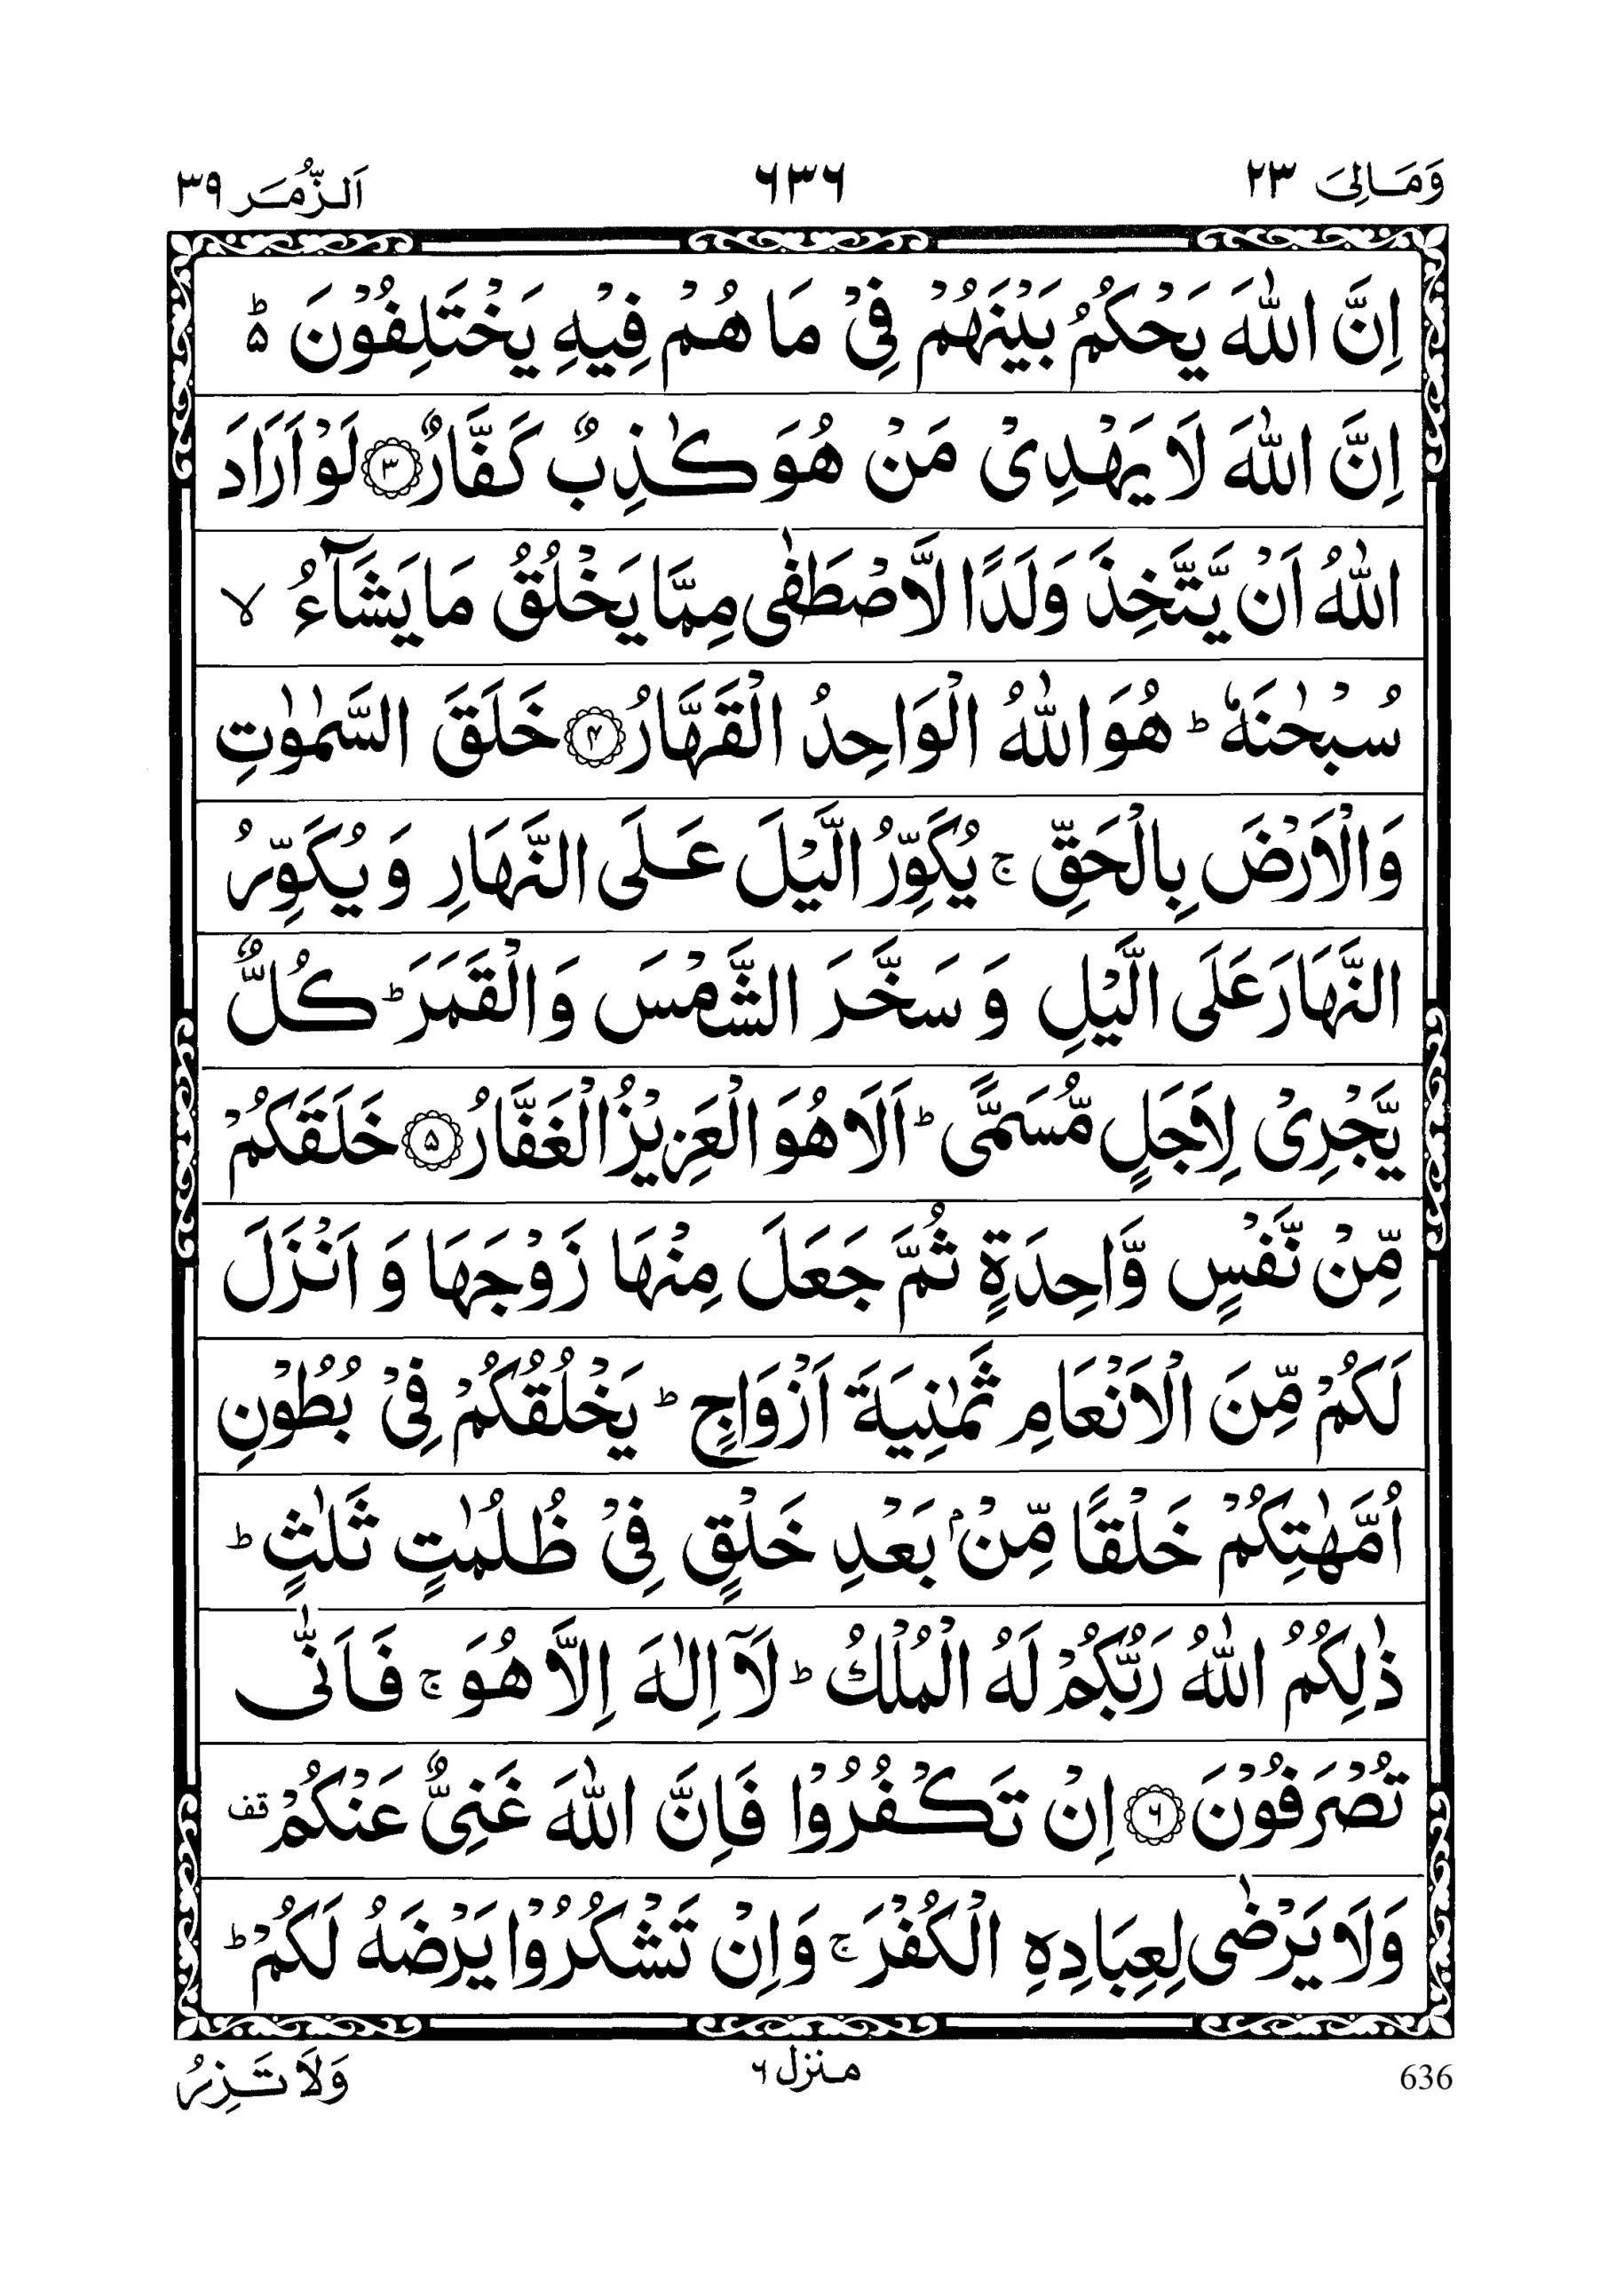 وَمَالِیَ ٢٣ ٦٣٦ اَلزُّمَر ٣٩
اِنَّ اللّٰهَ یَحْكُمُ بَیْنَهُمْ فِیْ مَا هُمْ فِیْهِ یَخْتَلِفُوْنَ ؕ۵
اِنَّ اللّٰهَ لَا یَهْدِیْ مَنْ هُوَ كٰذِبٌ كَفَّارٌ ﴿۳﴾ لَوْ اَرَادَ
اللّٰهُ اَنْ یَّتَّخِذَ وَلَدًا لَّاصْطَفٰی مِمَّا یَخْلُقُ مَا یَشَآءُ ۙ
سُبْحٰنَهٗ ؕ هُوَ اللّٰهُ الْوَاحِدُ الْقَهَّارُ ﴿۴﴾ خَلَقَ السَّمٰوٰتِ
وَالْاَرْضَ بِالْحَقِّ ۚ یُكَوِّرُ الَّیْلَ عَلَی النَّهَارِ وَ یُكَوِّرُ
النَّهَارَ عَلَی الَّیْلِ وَ سَخَّرَ الشَّمْسَ وَالْقَمَرَ ؕ كُلٌّ
یَّجْرِیْ لِاَجَلٍ مُّسَمًّی ؕ اَلَا هُوَ الْعَزِیْزُ الْغَفَّارُ ﴿۵﴾ خَلَقَكُمْ
مِّنْ نَّفْسٍ وَّاحِدَةٍ ثُمَّ جَعَلَ مِنْهَا زَوْجَهَا وَ اَنْزَلَ
لَكُمْ مِّنَ الْاَنْعَامِ ثَمٰنِیَةَ اَزْوَاجٍ ؕ یَخْلُقُكُمْ فِیْ بُطُوْنِ
اُمَّهٰتِكُمْ خَلْقًا مِّنْۢ بَعْدِ خَلْقٍ فِیْ ظُلُمٰتٍ ثَلٰثٍ ؕ
ذٰلِكُمُ اللّٰهُ رَبُّكُمْ لَهُ الْمُلْكُ ؕ لَاۤ اِلٰهَ اِلَّا هُوَ ۚ فَاَنّٰی
تُصْرَفُوْنَ ﴿۶﴾ اِنْ تَكْفُرُوْا فَاِنَّ اللّٰهَ غَنِیٌّ عَنْكُمْ قف
وَلَا یَرْضٰی لِعِبَادِهِ الْكُفْرَ ۚ وَاِنْ تَشْكُرُوْا یَرْضَهُ لَكُمْ ؕ
636 منزل ٦ وَلَا تَزِرُ